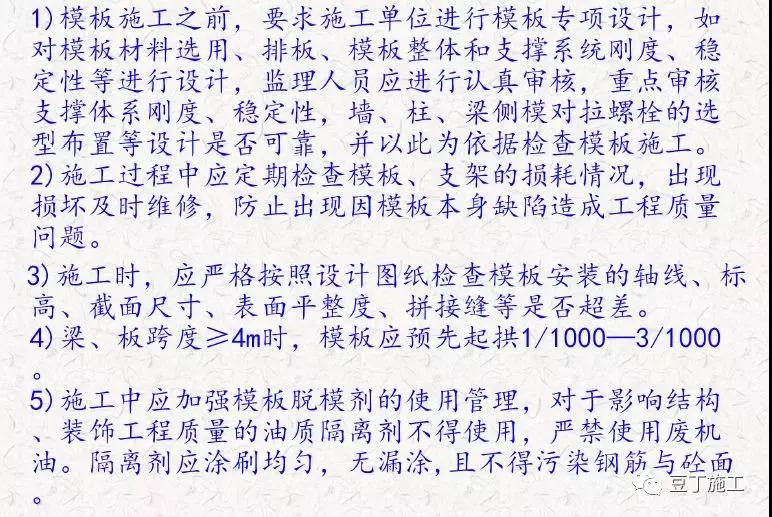 1)模板施工之前，要求施工单位进行模板专项设计，如
对模板材料选用、排板、模板整体和支撑系统刚度、稳
定性等进行设计，监理人员应进行认真审核，重点审核
支撑体系刚度、稳定性，墙、柱、梁侧模对拉螺栓的选
型布置等设计是否可靠，并以此为依据检查模板施工。
2)施工过程中应定期检查模板、支架的损耗情况，出现
损坏及时维修，防止出现因模板本身缺陷造成工程质量
问题。
3)施工时，应严格按照设计图纸检查模板安装的轴线、标
高、截面尺寸、表面平整度、拼接缝等是否超差。
4)梁、板跨度≥4m时，模板应预先起拱1/1000—3/1000
。
5)施工中应加强模板脱模剂的使用管理，对于影响结构
、装饰工程质量的油质隔离剂不得使用，严禁使用废机
油。隔离剂应涂刷均匀，无漏涂,且不得污染钢筋与砼面
。
豆丁施工